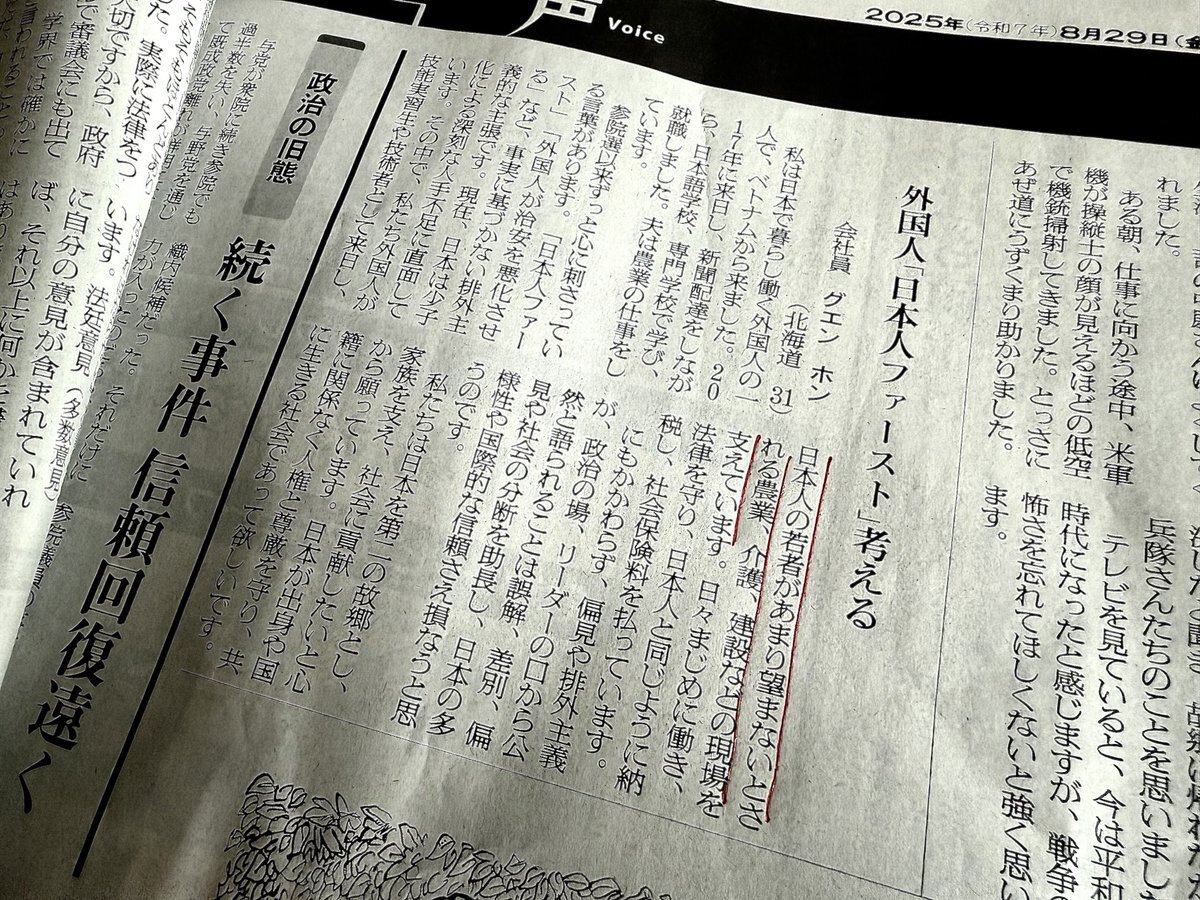 声
Voice
2025年(令和7年)8月29日(金
れました。
ある朝、仕事に向かう途中、米軍
機が操縦士の顔が見えるほどの低空
で機銃掃射してきました。とっさに
あぜ道にうずくまり助かりました。
兵隊さんたちのことを思いました
テレビを見ていると、今は平和
時代になったと感じますが、戦争の
怖さを忘れてほしくないと強く思い
ます。
外国人「日本人ファースト」考える
会社員 グエン ホン
(北海道 31)
私は日本で暮らし働く外国人の一
人で、ベトナムから来ました。20
17年に来日し、新聞配達をしなが
ら、日本語学校、専門学校で学び、
就職しました。夫は農業の仕事をし
ています。
参院選以来ずっと心に刺さってい
る言葉があります。「日本人ファー
スト」「外国人が治安を悪化させ
る」など、事実に基づかない排外主
義的な主張です。現在、日本は少子
化による深刻な人手不足に直面して
います。その中で、私たち外国人が
技能実習生や技術者として来日し、
日本人の若者があまり望まないとさ
れる農業、介護、建設などの現場を
支えています。日々まじめに働き、
法律を守り、日本人と同じように納
税し、社会保険料を払っています。
にもかかわらず、偏見や排外主義
が、政治の場、リーダーの口から公
然と語られることは誤解、差別、偏
見や社会の分断を助長し、日本の多
様性や国際的な信頼さえ損なうと思
うのです。
私たちは日本を第二の故郷とし、
家族を支え、社会に貢献したいと心
から願っています。日本が出身や国
籍に関係なく人権と尊厳を守り、共
に生きる社会であって欲しいです。
政治の旧態
続く事件 信頼回復遠く
与党が衆院に続き参院でも
過半数を失い、与野党を通じ
て既成政党離れが鮮明
織内候補だった。それだけに
た。実際に法律をつ
大切ですから、政府
で審議会にも出て
学界では確かに
います。法廷意見(多数意見)
に自分の意見が含まれていれ
ば、それ以上に何かを